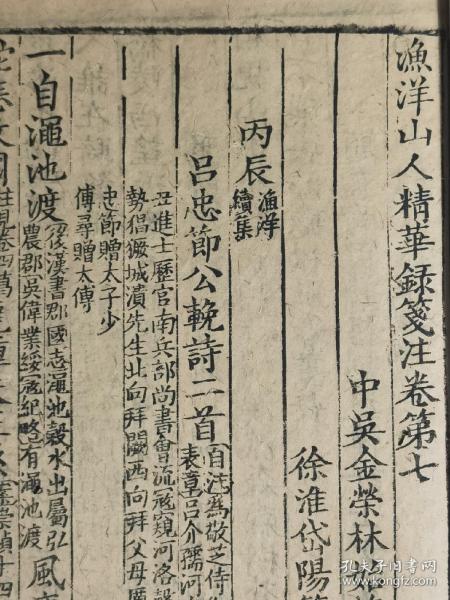 漁洋山人精華録箋注卷第七
中吳金榮林
徐淮岱陽
丙辰漁洋續集
呂忠節公輓詩二首自注爲敬芝侍
表章呂介孺河
丑進士歷官南兵部尚書會流寇窺河洛
勢倡獗城潰先生北向拜闕西向拜父母
忠節贈太子少
傅尋贈太傅
一自澠池渡後漢書郡國志澠池穀水出屬弘
農郡吳偉業綏寇紀略有澠池渡風
孔夫子旧书网